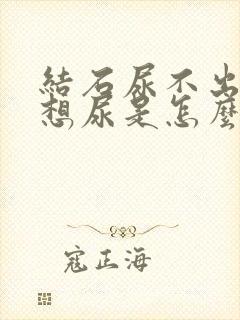 結石尿不出
想尿是怎麼
寇正海